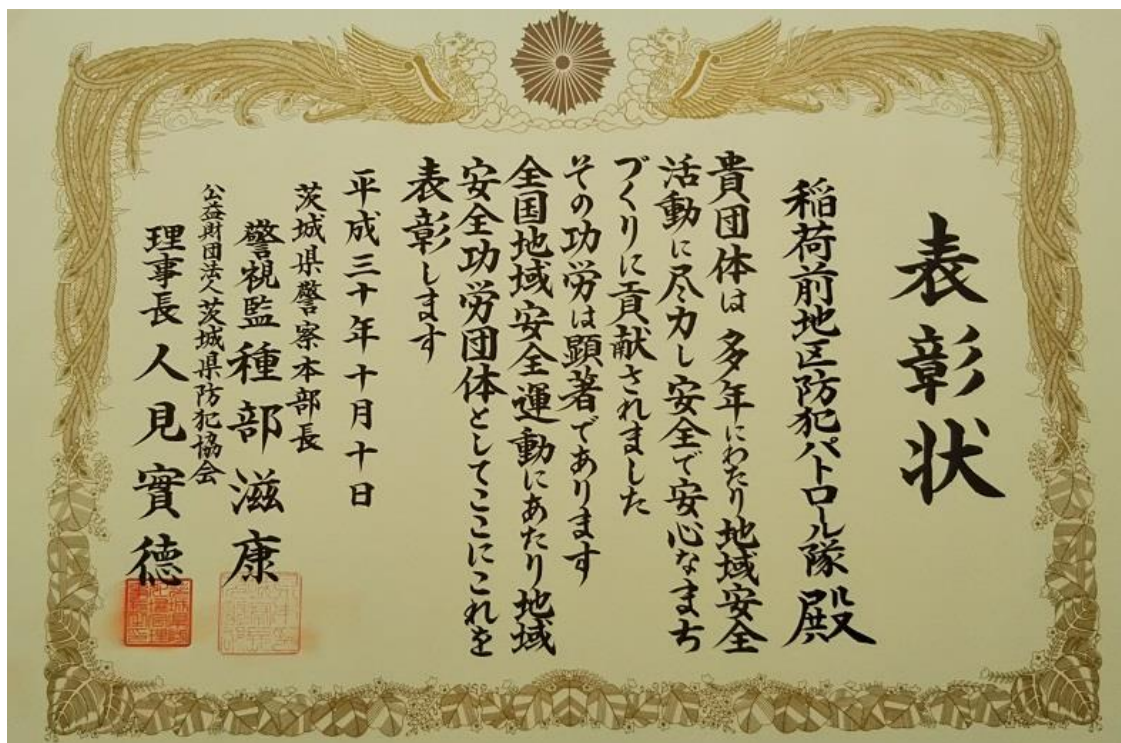 表彰状
稲荷前地区防犯パトロール隊殿
貴団体は多年にわたり地域安全
活動に尽力し安全で安心なまち
づくりに貢献されました
その功労は顕著であります
全国地域安全運動にあたり地域
安全功労団体としてここにこれを
表彰します
平成三十年十月十日
茨城県警察本部長
警視監種部滋康
公益財団法人茨城県防犯協会
理事長人見實徳